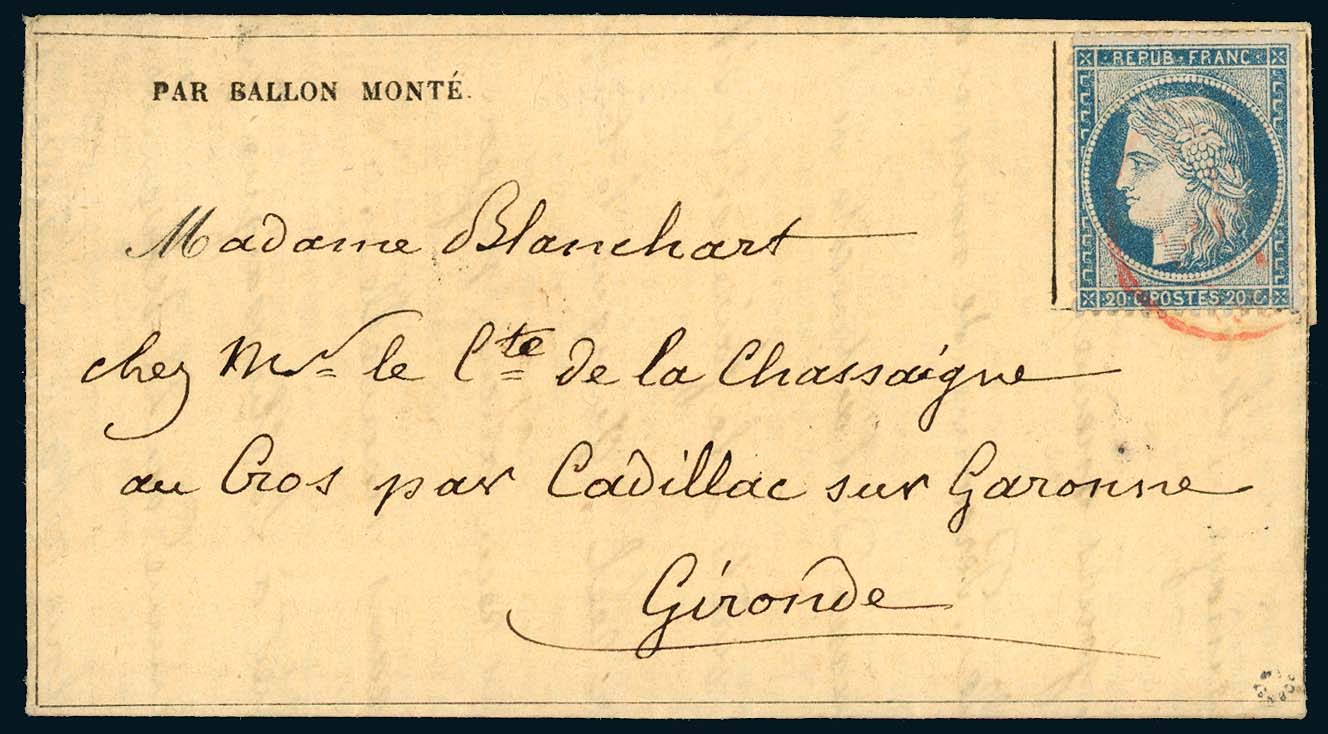 PAR BALLON MONTÉ.
REPUB. FRANC.
20.C.POSTES.20.C.
Madame Blanchart
chez Mr le Cte de la Chassaigne
au Cros par Cadillac sur Garonne
Gironde